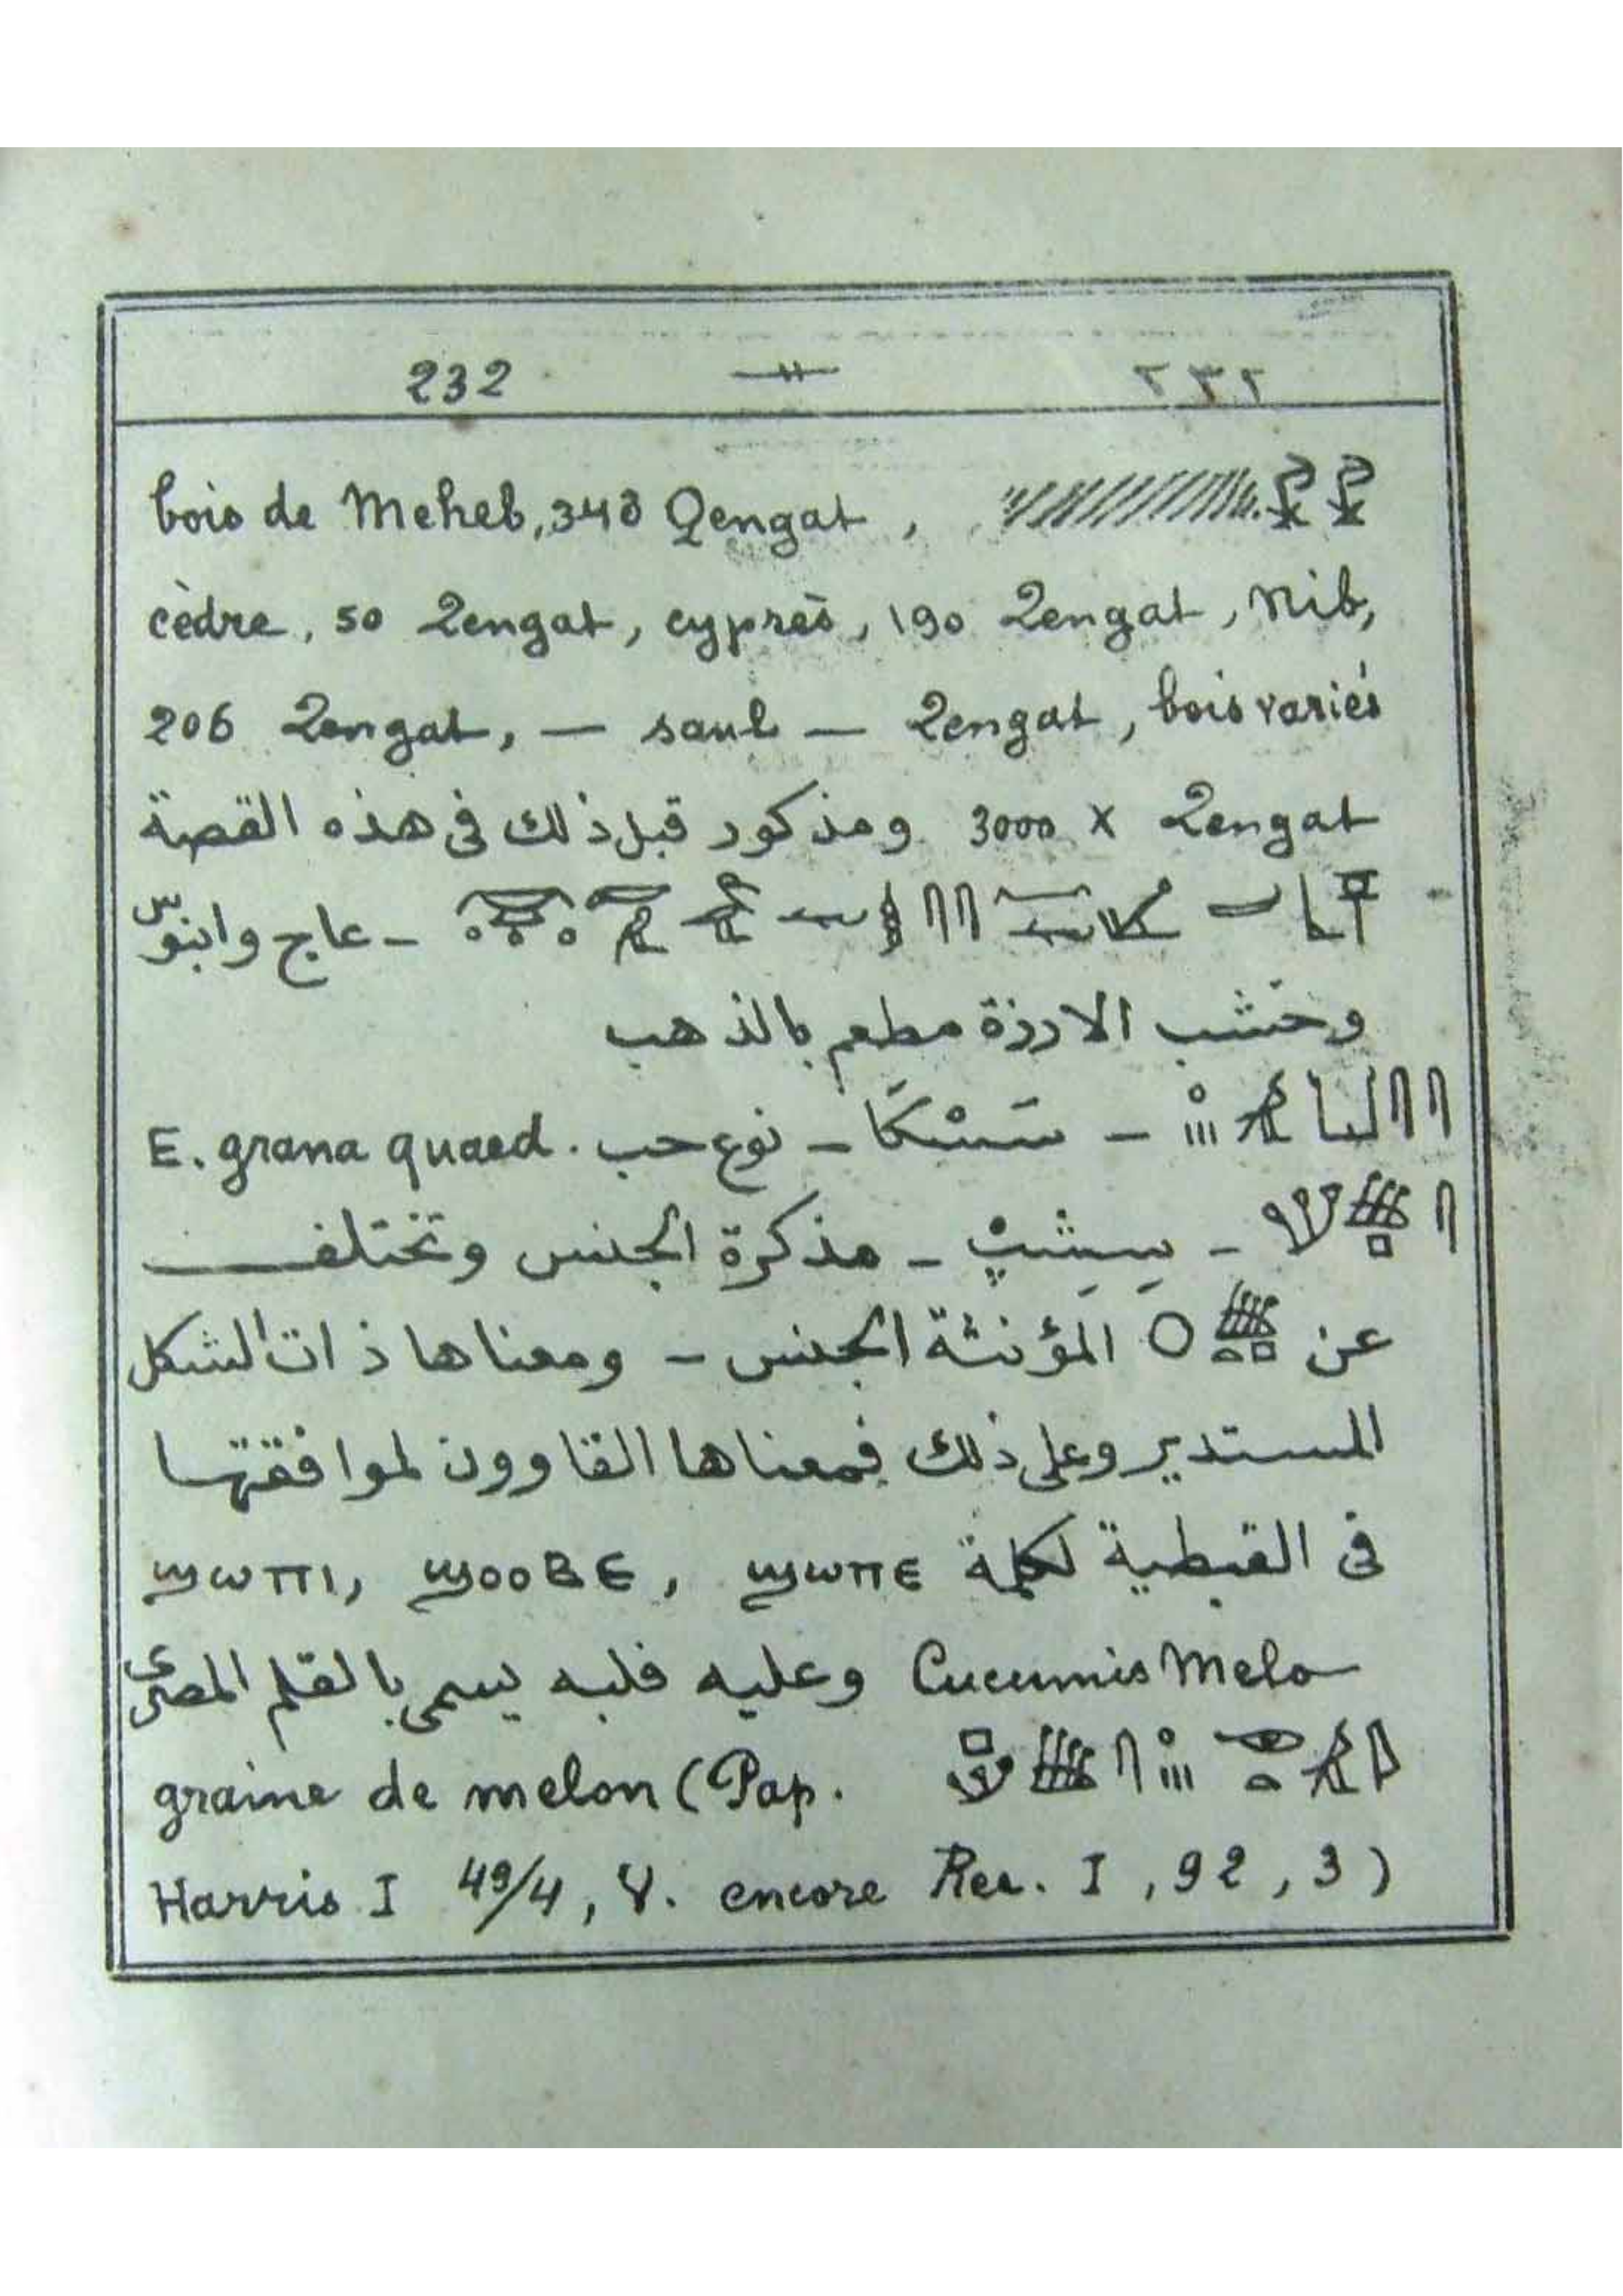 232 — ٢٣٢
bois de Meheb, 348 Qengat,
cèdre, 50 Qengat, cyprès, 190 Qengat, Nib,
206 Qengat, — saul — Qengat, bois variés
3000 x Qengat ومذكور قبل ذلك فى هذه القصة
ـ عاج وابنوس
وخشب الارزة مطعم بالذهب
ـ سَسْكَا ـ نوع حب . E. grana quaed
ـ سِشِپْ ـ مذكرة الجنس وتختلف
عن المؤنثة الجنس ـ ومعناها ذات الشكل
المستدير وعلى ذلك فمعناها القاوون لموافقتها
فى القبطية لكلمة ϣωπε , ϣοοβε , ϣωπι
Cucumis Melo وعليه فلبه يسمى بالقلم المصرى
graine de melon (Pap.
Harris I 49/4, V. encore Rec. I, 92, 3)